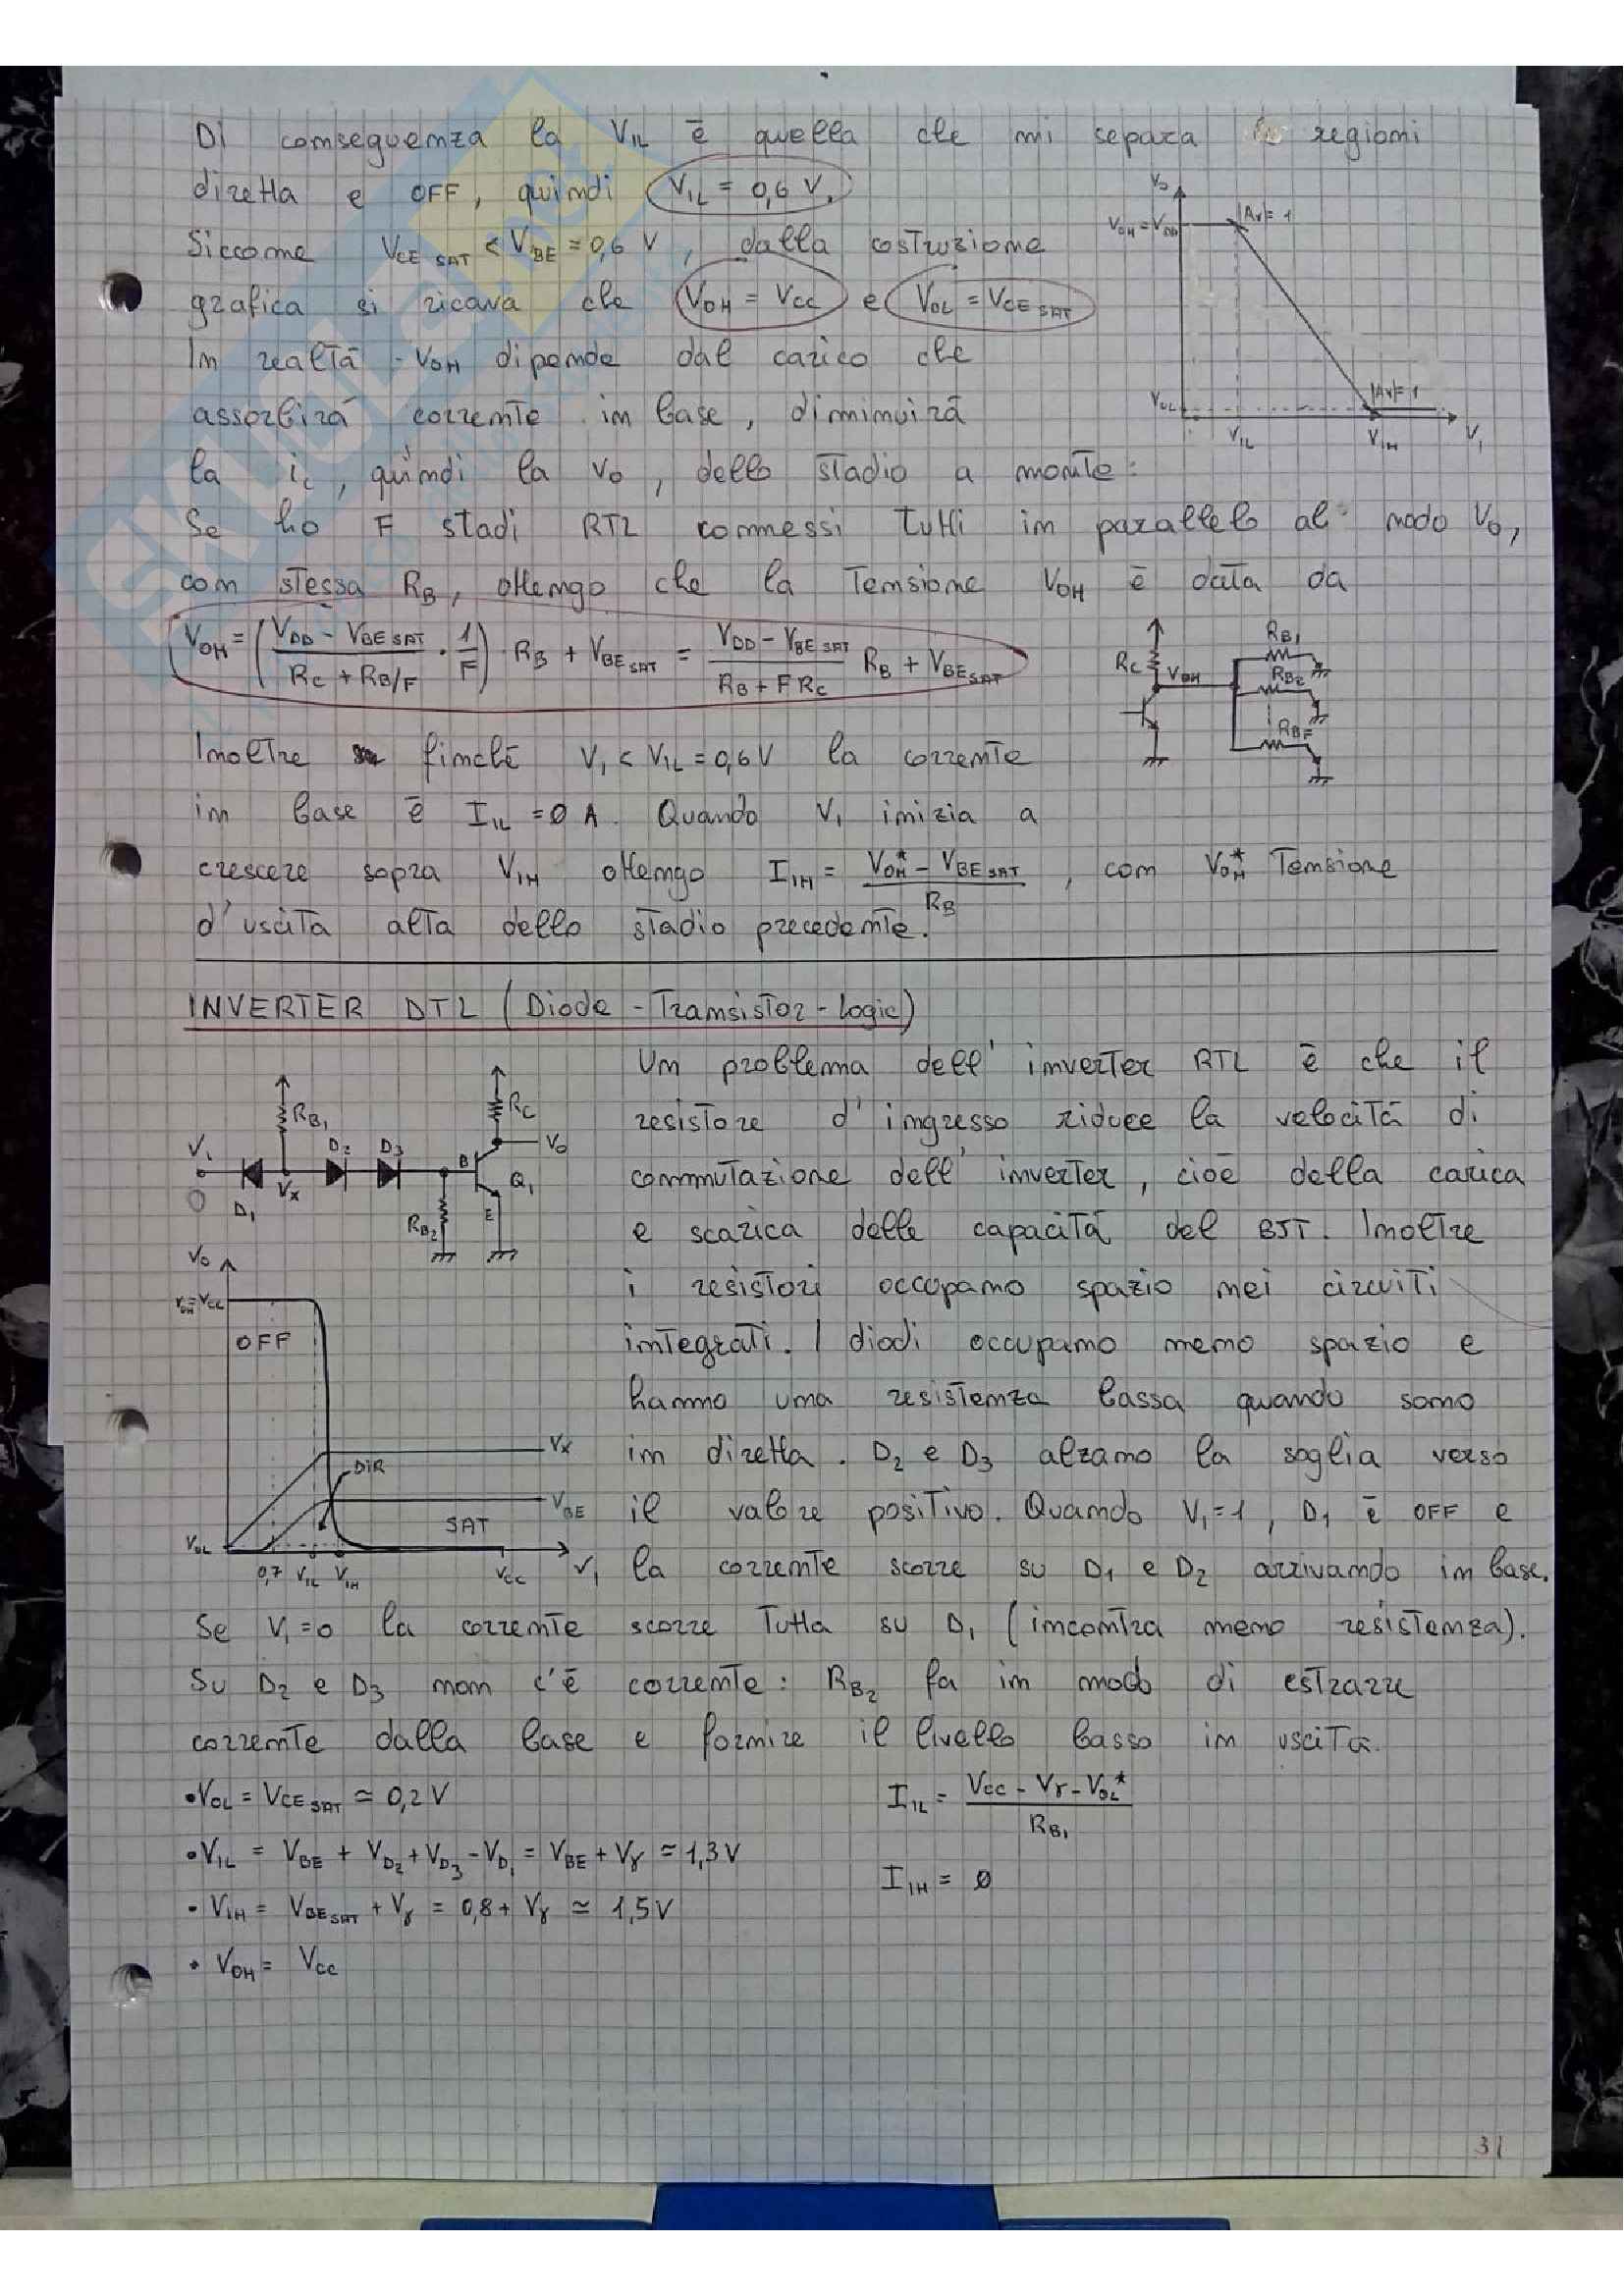 Di conseguenza la VIL è quella che mi separa le regioni
diretta e OFF, quindi VIL = 0,6 V.
Siccome VCE SAT < VBE = 0,6 V, dalla costruzione
grafica si ricava che VOH = VCC e VOL = VCE SAT
In realtà VOH dipende dal carico che
assorbirà corrente in base, diminuirà
la ic, quindi la VO, dello stadio a monte:
Se ho F stadi RTL connessi tutti in parallelo al nodo VO,
con stessa RB, ottengo che la tensione VOH è data da
VOH = ( (VDD - VBE SAT)/(RC + RB/F) · 1/F ) · RB + VBE SAT = (VDD - VBE SAT)/(RB + F RC) RB + VBE SAT
Inoltre finché V1 < VIL = 0,6 V la corrente
in base è IIL = 0 A. Quando V1 inizia a
crescere sopra VIH ottengo IIH = (VOH* - VBE SAT)/RB , con VOH* tensione
d'uscita alta dello stadio precedente.
VO
VOH = VDD
|Av|=1
|Av|=1
VOL
VIL
VIH
V1
RC
VOH
RB1
RB2
RBF
INVERTER DTL (Diode - Transistor - Logic)
Un problema dell'inverter RTL è che il
resistore d'ingresso riduce la velocità di
commutazione dell'inverter, cioè della carica
e scarica delle capacità del BJT. Inoltre
i resistori occupano spazio nei circuiti
integrati. I diodi occupano meno spazio e
hanno una resistenza bassa quando sono
in diretta. D2 e D3 alzano la soglia verso
il valore positivo. Quando V1=1, D1 è OFF e
la corrente scorre su D1 e D2 arrivando in base.
V1
0
D1
RB1
VX
D2
D3
B
RB2
RC
VO
Q1
E
VO
VOH=VCC
OFF
VX
DIR
VBE
SAT
VOL
0,7
VIL
VIH
VCC
V1
Se V1=0 la corrente scorre tutta su D1 (incontra meno resistenza).
Su D2 e D3 non c'è corrente: RB2 fa in modo di estrarre
corrente dalla base e fornire il livello basso in uscita.
•VOL = VCE SAT ≃ 0,2 V
•VIL = VBE + VD2 + VD3 - VD1 = VBE + Vγ ≃ 1,3 V
• VIH = VBE SAT + Vγ = 0,8 + Vγ ≃ 1,5 V
• VOH = VCC
IIL = (VCC - Vγ - VOL*)/RB1
IIH = 0
31